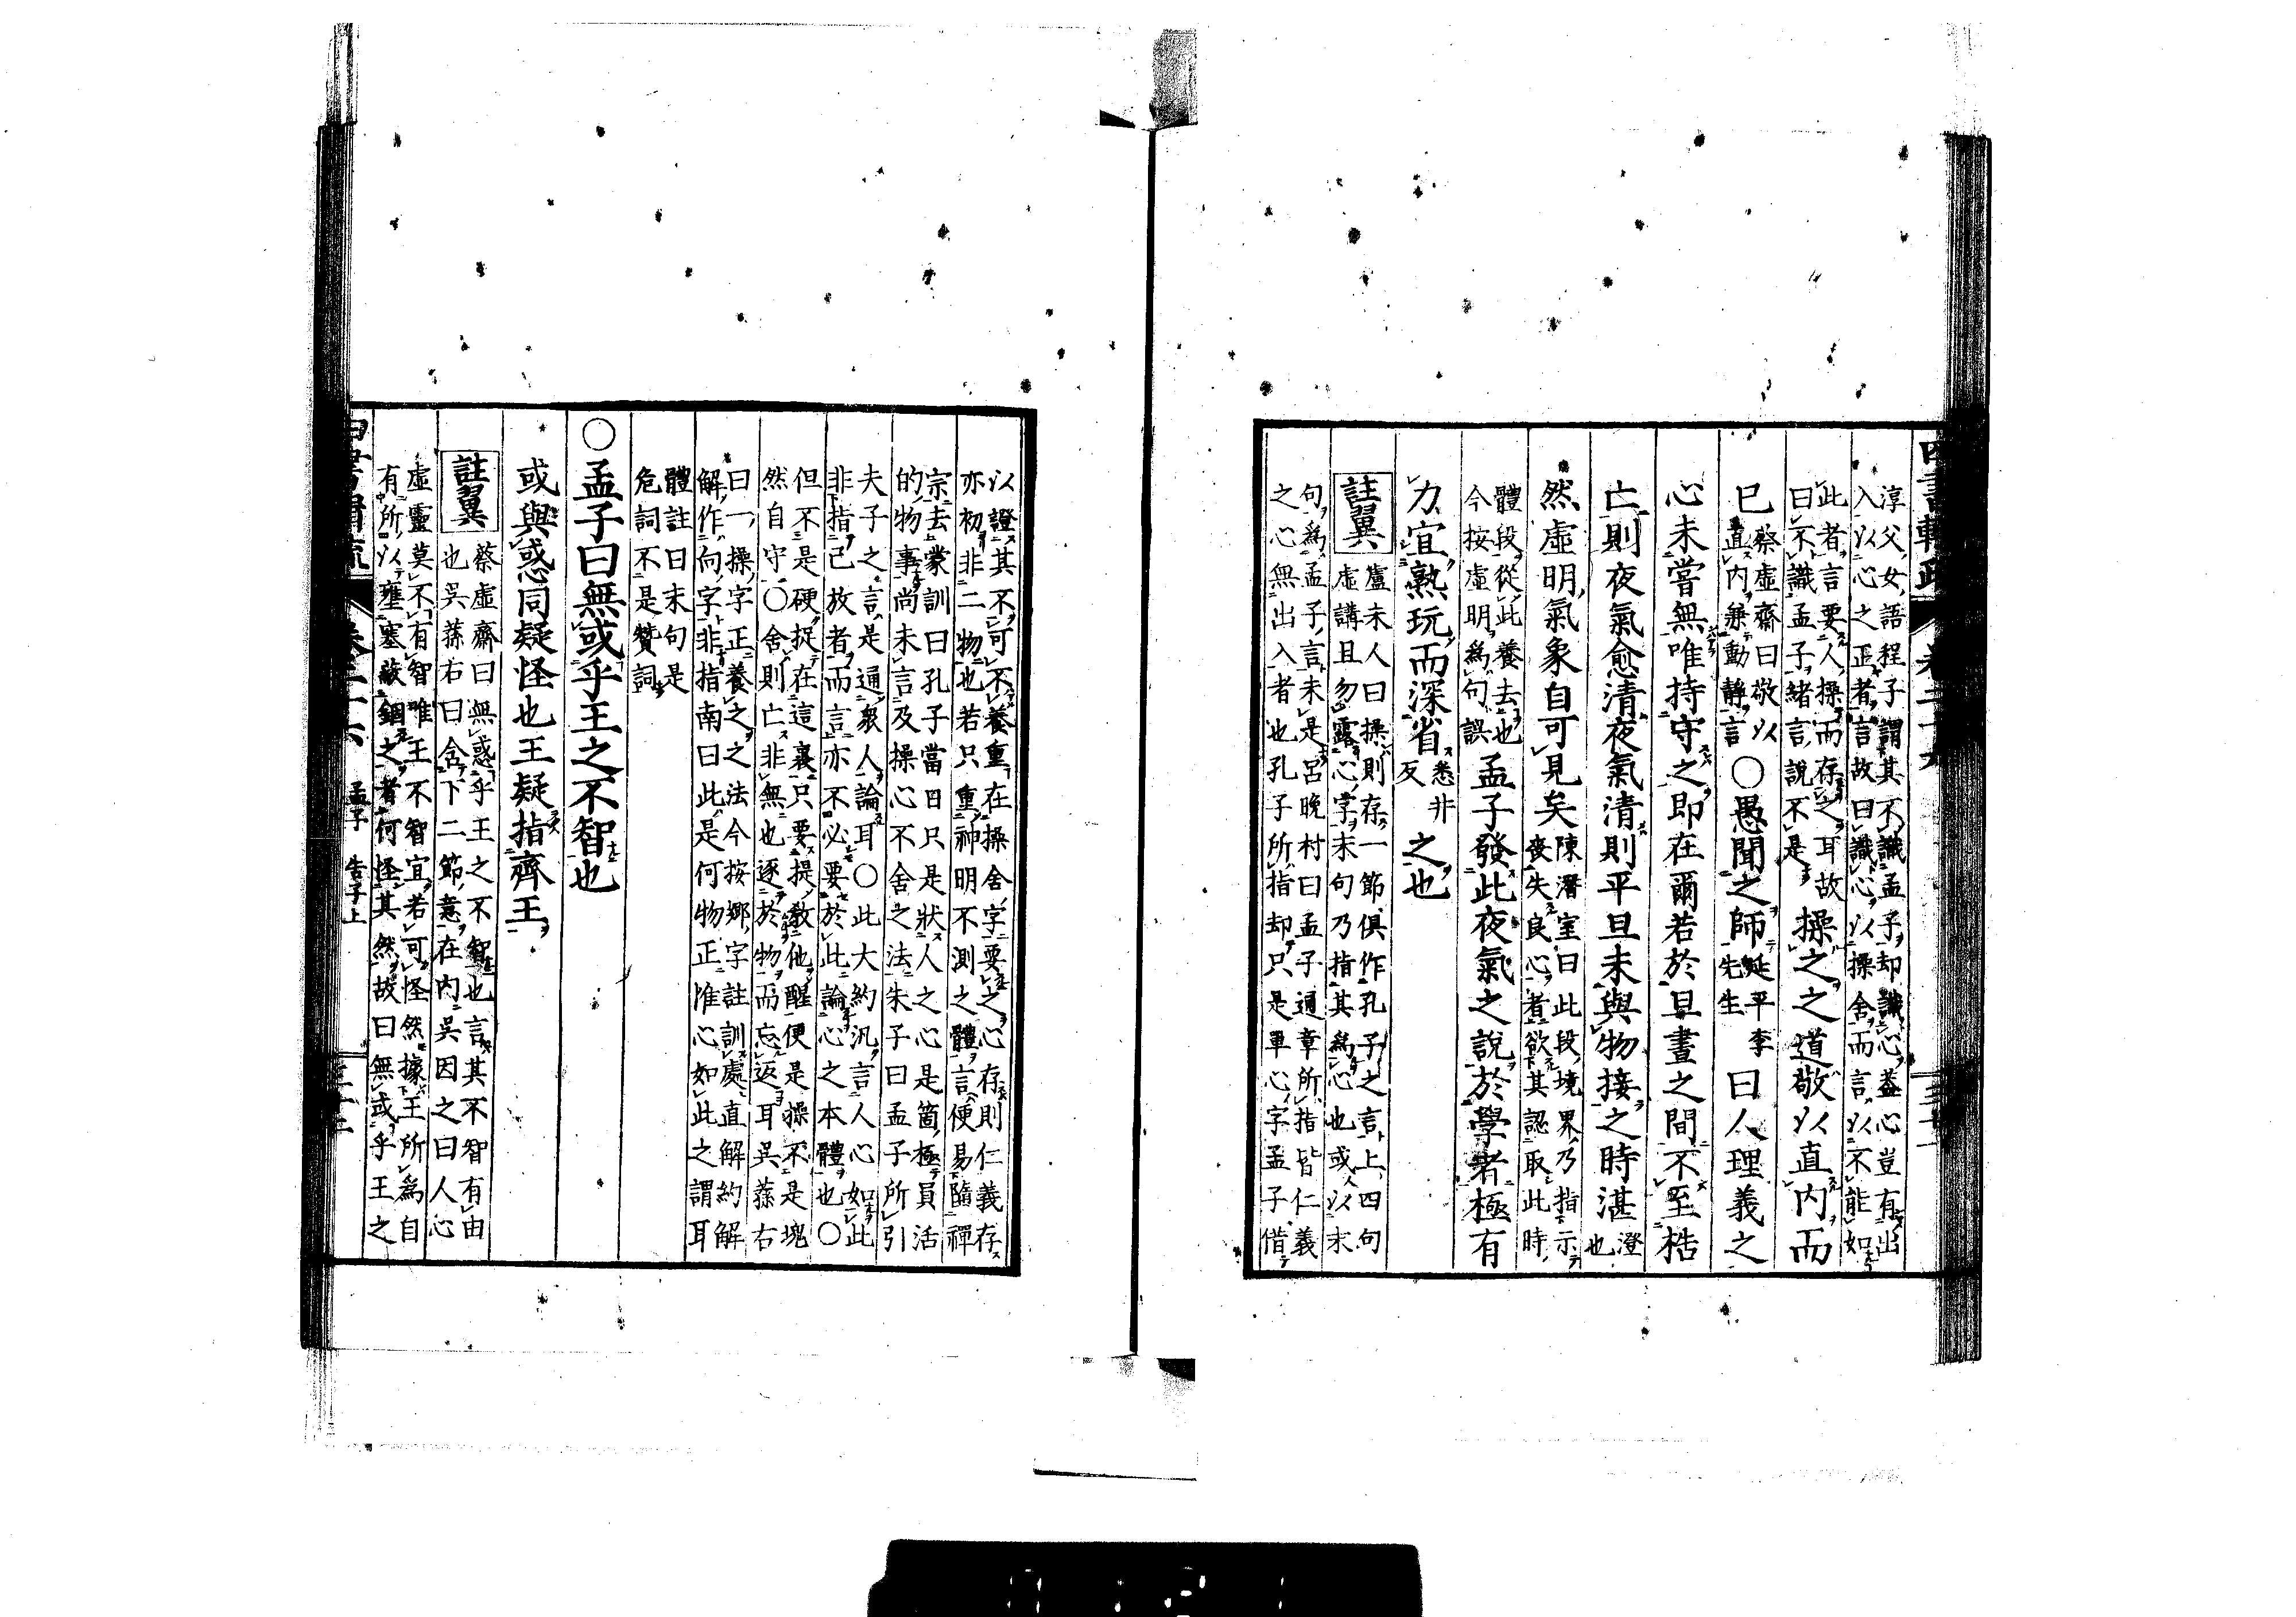 四書輯疏 卷二十六
淳父女語程子謂其不識孟子却識心蓋心豈有出
入以心之正者言故曰識心以操舍而言以不能如
此者言要人操而存之耳故
曰不識孟子緒言說不是
操之之道敬以直内而
已
蔡虛齋曰敬以
直内兼動靜言
○愚聞之師
延平李
先生
曰人理義之
心未嘗無唯持守之即在爾若於旦晝之間不至梏
亡則夜氣愈清夜氣清則平旦未與物接之時湛
澄
也
然虛明氣象自可見矣
陳潛室曰此段境界乃指示
喪失良心者欲其認取此時
體段從此養去也
今按虛明爲句誤
孟子發此夜氣之說於學者極有
力宜熟玩而深省
悉井
反
之也
註翼
盧未人曰操則存一節俱作孔子之言上四句
虛講且勿露心字末句乃指其爲心也或以末
句爲孟子言未是呂晚村曰孟子通章所指皆仁義
之心無出入者也孔子所指却只是單心字孟子借
以證其不可不養重在操舍字要之心存則仁義存
亦初非二物也若只重神明不測之體言便易隨禪
宗去蒙訓曰孔子當日只是狀人之心是箇極員活
的物事尚未言及操心不舍之法朱子曰孟子所引
夫子之言是通衆人論耳○此大約汎言人心如此
非指已放者而言亦不必要於此論心之本體也○
但不是硬捉在這裏只要提敎他醒便是操不是塊
然自守○舍則亡非無也逐於物而忘返耳吳蓀右
曰一操字正養之之法今按鄉字註訓處直解約解
解作向字非指南曰此是何物正惟心如此之謂耳
體註曰末句是
危詞不是贊詞
○孟子曰無或乎王之不智也
或與惑同疑怪也王疑指齊王
註翼
蔡虛齋曰無惑乎王之不智也言其不智有由
也吳蓀右曰含下二節意在内吳因之曰人心
虛靈莫不有智唯王不智宜若可怪然據王所爲自
有所以壅塞蔽錮之者何怪其然故曰無或乎王之
四書輯疏 卷二十六 孟子 告子上